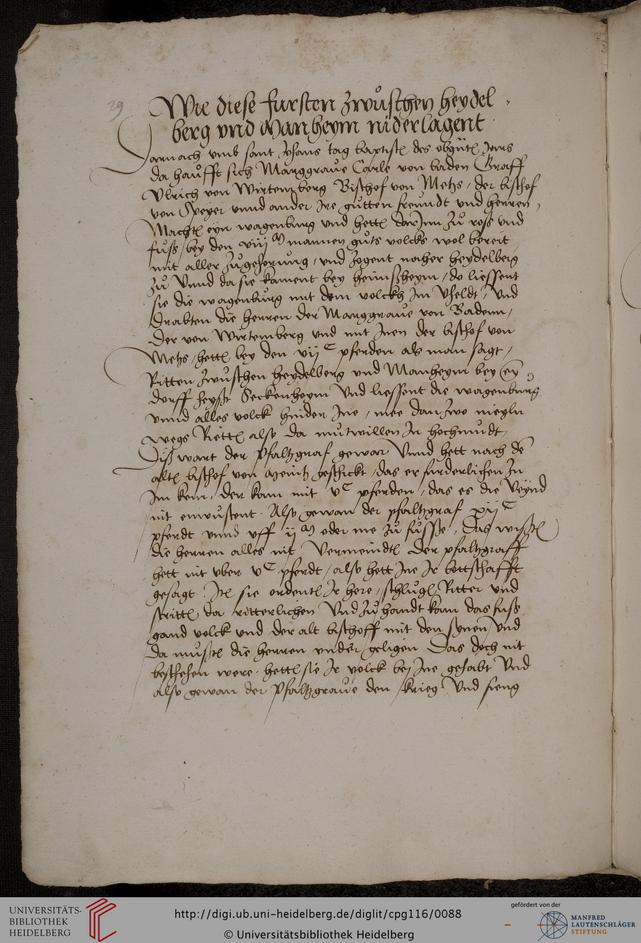 29
Wie diese fursten zwuschen heydel
berg vnd Manheym niderlagent
Darnach vmb sant Johans tag baptisten des obgnten Jars
da haufft sich Marggraue Carle von baden Graff
Vlrich von Wirtemberg Bischof von Metzs, der bischof
von Speyer vnnd ander Ire gutten freundt vnd herren,
Machten eyn wagenburg vnd hetten dar Inn zu ross vnd
fuss, bey den viii M mannen guts volcks wol bereit
mit aller zugehorung, vnd zogent naher heydelberg
zu Vnnd da sie kament bey heimssheym, do liessent
sie die wagenburg mit dem volckh Im Vheldt, Vnd
drabten die herren der Marggraue von Badenn,
Der von Wirtemberg vnd mit Inen der bischof von
Metzs, hetten bey den vii C pferden als man sagt,
Ritten zwuschen heydelberg vnd Manheym bey eyn
dorff heysst Seckenheym Vnd liessent die wagenburg
vnnd alles volck hinder Ine, mee dan zwo meyln
wegs Rietten also da mutwillen In hochmudt
Diss wart der Pfaltzgraf gewar Vnnd hett nach dem
alten bischof von Meintz geschickt, das er furderlichen zu
Im kem, der kam mit V C pferden, das es die Veynd
nit enwustent. Also gewan der pfaltzgraf xii C
pferdt vnnd vff ii M oder me zu fusse. Das wussten
die herren alles nit Vermeindten der pfaltzgraff
hett nit vber V C pferdt, also hett Ine Ir bottschafft
gesagt. Item sie ordenten Ir here, schlugen Ritter vnd
stritten da ritterlichen Vnd zu handt kam das fuss
gand volck vnd der alt bischoff mit den synen Vnd
da musten die herren vnder geligen Das doch nit
beschehen were, hetten sie Ir volck bey Ine gehabt Vnd
also gewan der Pfaltzgraue den krieg Vnd fieng
UNIVERSITÄTS-
BIBLIOTHEK
HEIDELBERG
http://digi.ub.uni-heidelberg.de/diglit/cpg116/0088
© Universitätsbibliothek Heidelberg
gefördert von der
MANFRED
LAUTENSCHLÄGER
STIFTUNG